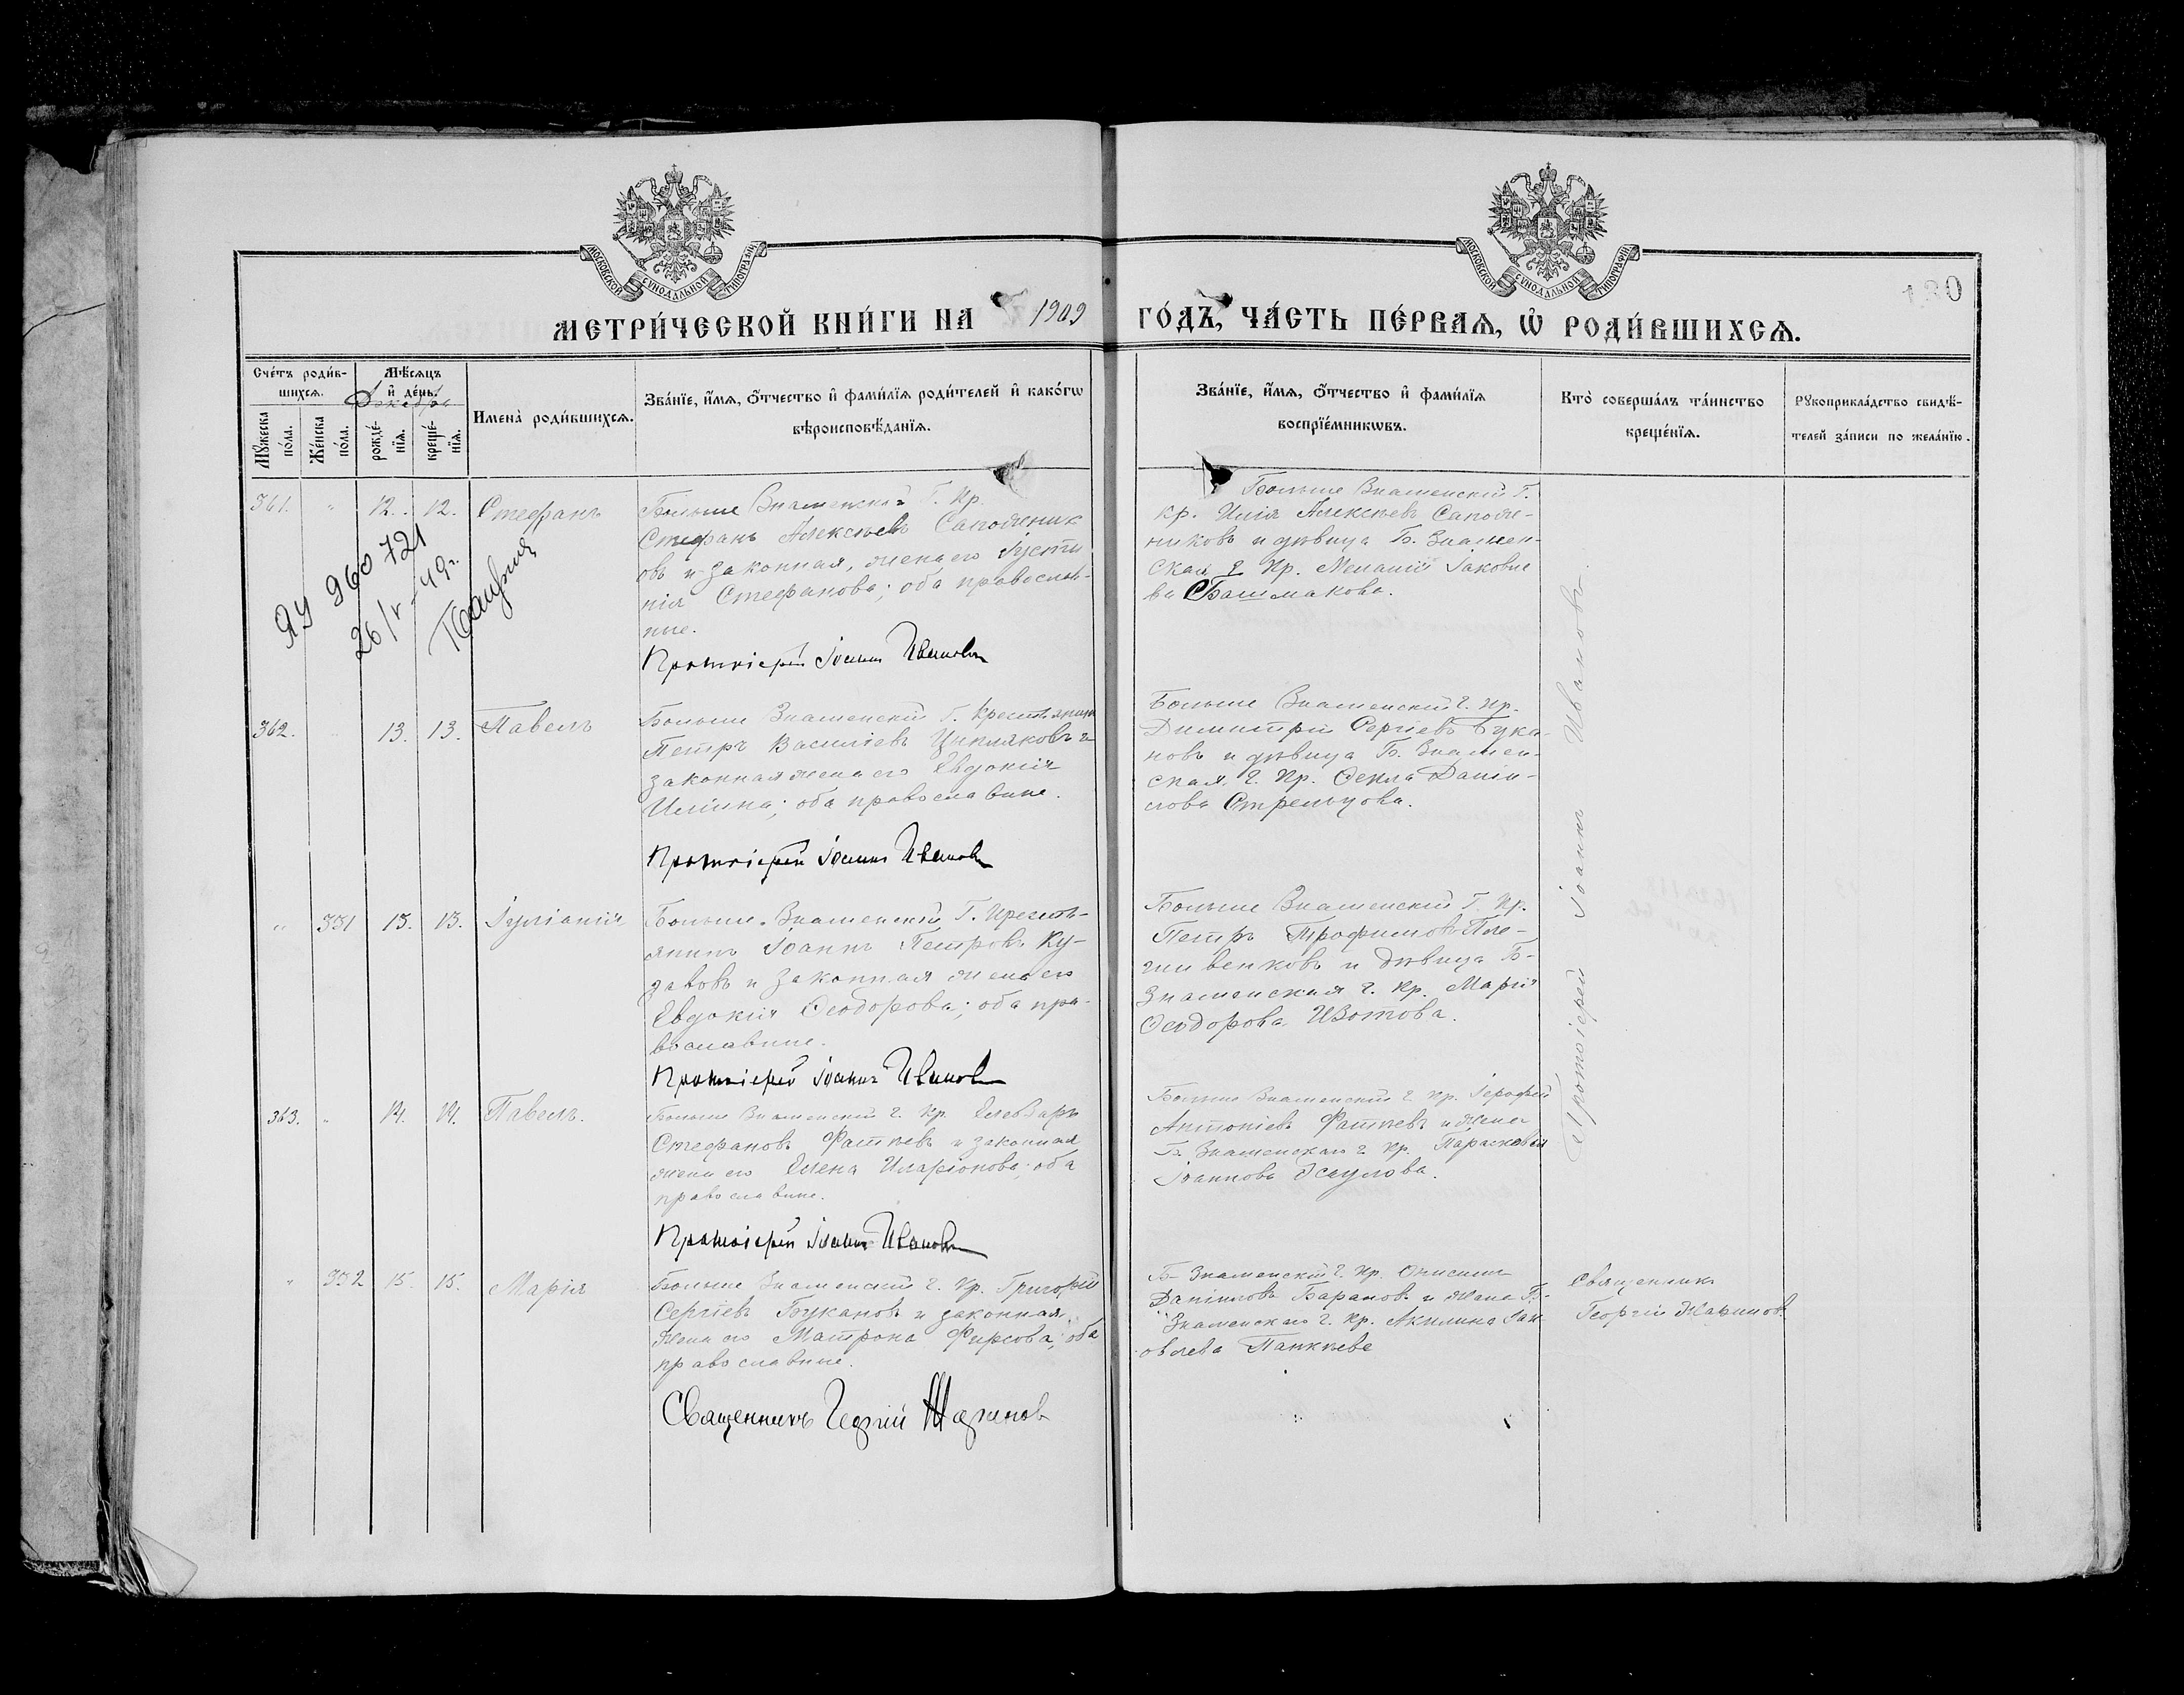 МОСКОВСКОЙ СѴНОДАЛЬНОЙ ТИПОГРАФІИ
МОСКОВСКОЙ СѴНОДАЛЬНОЙ ТИПОГРАФІИ
130
МЕТРИ́ЧЕСКОЙ КНИ́ГИ НА 1909 ГО́ДЪ, ЧА́СТЬ ПЕ́РВАѦ, Ѡ҆ РОДИ́ВШИХСѦ.
Сче́тъ роди́в-
шихсѧ.
Мꙋ́жеска
по́ла.
Же́нска
по́ла.
Мѣ́сѧцъ
и҆ де́нь.
Декабрь
рожде́-
нїѧ.
креще́-
нїѧ.
И҆мена̀ роди́вшихсѧ.
Зва́нїе, и҆́мѧ, ѻ҆́тчество и҆ фами́лїѧ роди́телей и҆ како́гѡ
вѣроисповѣ́данїѧ.
Зва́нїе, и҆́мѧ, ѻ҆́тчество и҆ фами́лїѧ
воспрїе́мникѡвъ.
Кто̀ соверша́лъ та́инство
креще́нїѧ.
Рꙋкоприкла́дство свидѣ́-
телей за́писи по жела́нїю.
361. " 12. 12. Стефанъ
Больше Знаменскій Г. Кр.
Стефанъ Алексѣевъ Сапожник
овъ и законная, жена его Іусти
нія Стефанова; оба православ-
ные.
Протоіерей Іоаннъ Ивановъ
Больше Знаменскій Г.
кр. Илія Алексѣевъ Сапож-
никовъ и дѣвица Б. Знамен-
ская г. Кр. Меланія Іаковле
ва Башмакова.
ЯУ 960721
26/V-49г.
362. 13. 13. Павелъ
Больше Знаменскій Г. Крестьянинъ
Петръ Василіевъ Цыпляковъ и
законная жена его Евдокія
Иліина; оба православные.
Протоіерей Іоаннъ Ивановъ
Больше Знаменскій г. Кр.
Димитрій Сергіевъ Бука-
новъ и дѣвица Б. Знамен-
ская г. Кр. Ѳекла Даніи-
лова Стрельцова.
" 331 13. 13. Іуліанія
Больше-Знаменскій Г. Кресть-
янинъ Іоаннъ Петровъ Ку-
завовъ и законная жена его
Евдокія Ѳеодорова; оба пра-
вославные.
Протоіерей Іоаннъ Ивановъ
Больше Знаменскій Г. Кр.
Петръ Трофимовъ Пле-
шивенковъ и дѣвица Б-
Знаменская г. Кр. Марія
Ѳеодорова Изотова.
363. " 14. 14. Павелъ.
Больше Знаменскій г. Кр. Елеазаръ
Стефановъ Фатѣевъ и законная
жена его Елена Иларіонова; оба
православные.
Протоіерей Іоаннъ Ивановъ
Больше Знаменскій г. Кр. Іерофей
Антоніевъ Фатѣевъ и жена
Б. Знаменскаго г. Кр. Параскева
Іоаннова Эсаулова.
Протоіерей Іоаннъ Ивановъ.
" 332 15. 15. Марія
Больше Знаменскій г. Кр. Григорій
Сергіевъ Букановъ и законная
жена его Матрона Фирсова; оба
православные.
Священникъ Георгій Жариновъ
Б- Знаменскій г. Кр. Онисимъ
Даніиловъ Барановъ и жена Б-
Знаменскаго г. Кр. Акилина Іак
овлева Панкѣева
Священникъ
Георгій Жариновъ.